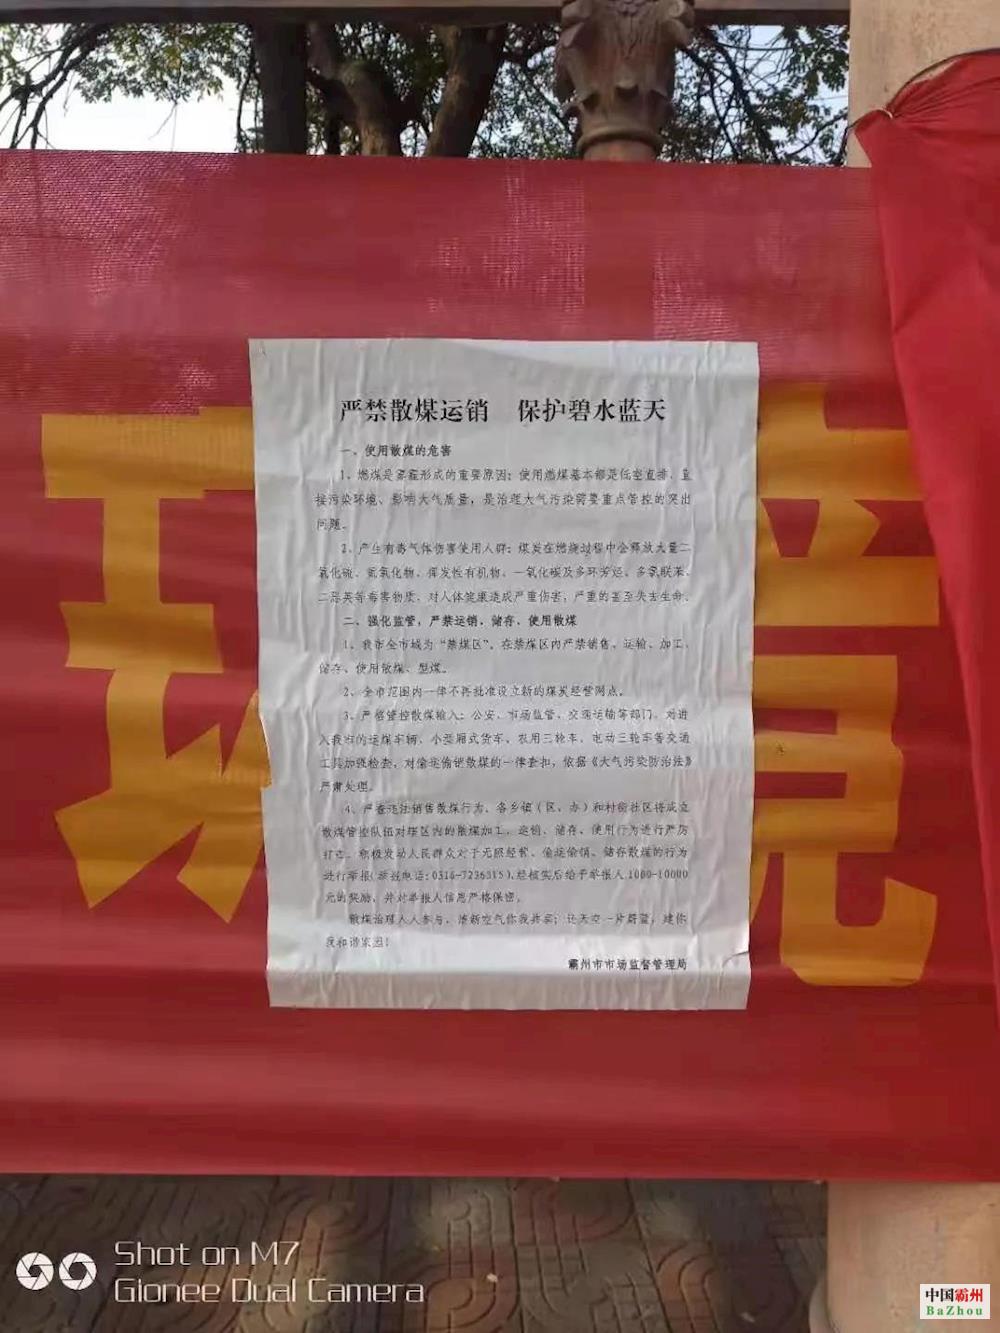 严禁散煤运销 保护碧水蓝天
一、使用散煤的危害
1、燃煤是雾霾形成的重要原因：使用燃煤基本都是低空直排、直
接污染环境、影响大气质量，是治理大气污染需要重点管控的突出
问题。
2、产生有毒气体伤害使用人群：煤炭在燃烧过程中会释放大量二
氧化硫、氮氧化物、挥发性有机物、一氧化碳及多环芳烃、多氯联苯、
二恶英等毒害物质，对人体健康造成严重伤害，严重的甚至失去生命。
二、强化监管，严禁运销、储存、使用散煤
1、我市全市域为“禁煤区”，在禁煤区内严禁销售、运输、加工、
储存、使用散煤、型煤。
2、全市范围内一律不再批准设立新的煤炭经营网点。
3、严格管控散煤输入：公安、市场监管、交通运输等部门，对进
入我市的运煤车辆、小型厢式货车、农用三轮车、电动三轮车等交通
工具加强检查，对偷运偷销散煤的一律查扣，依据《大气污染防治法》
严肃处理。
4、严查违法销售散煤行为，各乡镇（区、办）和村街社区将成立
散煤管控队伍对辖区内的散煤加工、运销、储存、使用行为进行严厉
打击，积极发动人民群众对于无照经营、偷运偷销、储存散煤的行为
进行举报(举报电话:0316-7236315),经核实后给予举报人1000-10000
元的奖励，并对举报人信息严格保密。
散煤治理人人参与，清新空气你我共享；还天空一片蔚蓝，建你
我和谐家园！
霸州市市场监督管理局
环 境
Shot on M7
Gionee Dual Camera
中国霸州
BaZhou